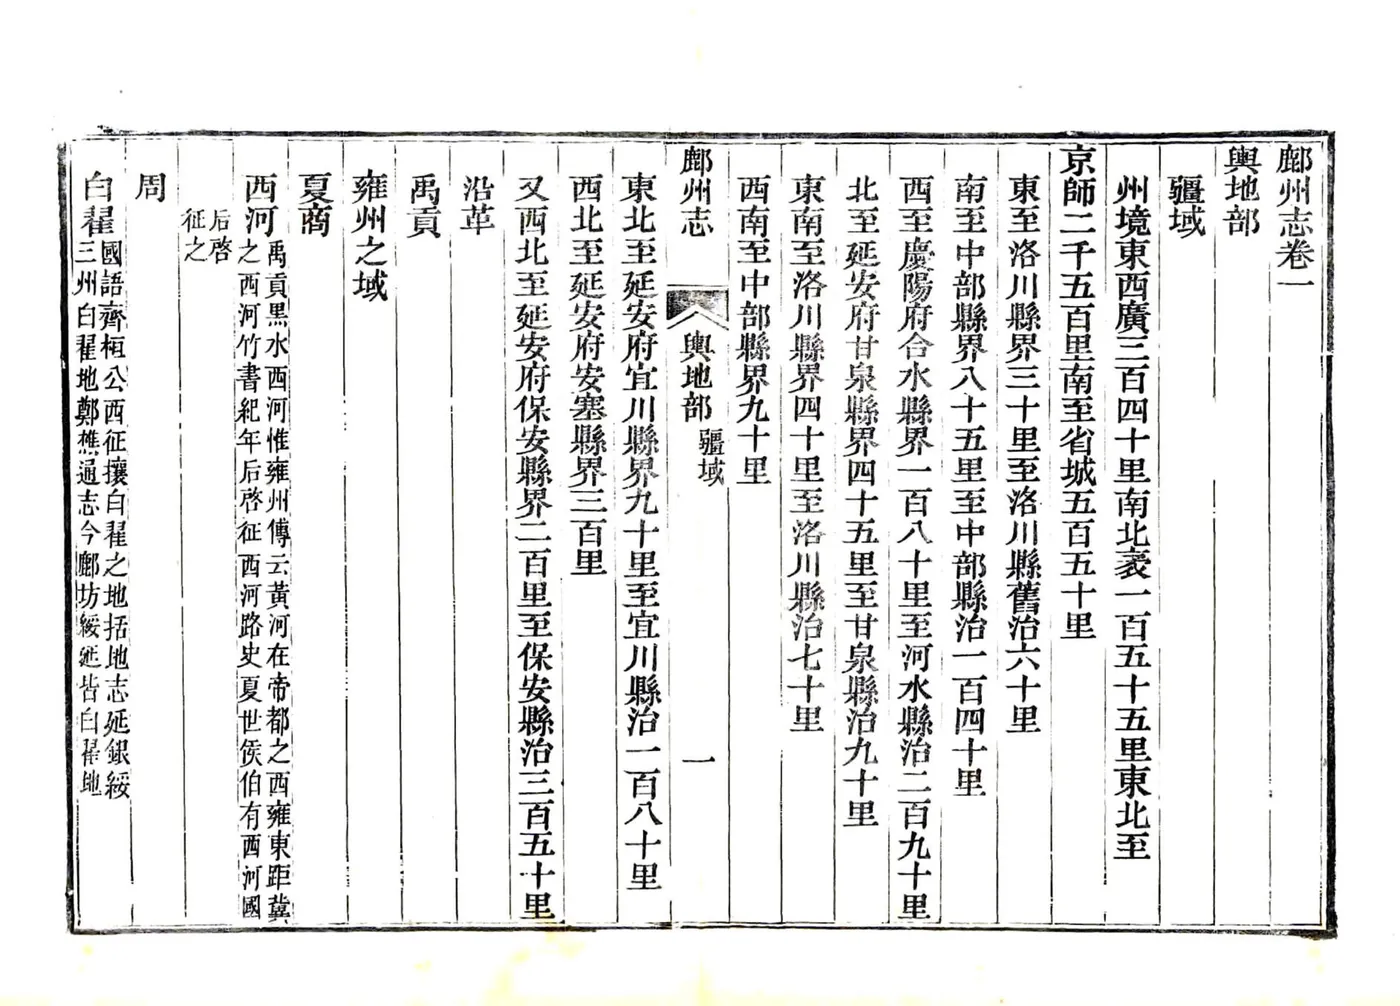 鄜州志卷一
輿地部
疆域
州境東西廣三百四十里南北袤一百五十五里東北至
京師二千五百里南至省城五百五十里
東至洛川縣界三十里至洛川縣舊治六十里
南至中部縣界八十五里至中部縣治一百四十里
西至慶陽府合水縣界一百八十里至河水縣治二百九十里
北至延安府甘泉縣界四十五里至甘泉縣治九十里
東南至洛川縣界四十里至洛川縣治七十里
西南至中部縣界九十里
鄜州志 輿地部 疆域 一
東北至延安府宜川縣界九十里至宜川縣治一百八十里
西北至延安府安塞縣界三百里
又西北至延安府保安縣界二百里至保安縣治三百五十里
沿革
禹貢
雍州之域
夏商
西河 禹貢黑水西河惟雍州傳云黃河在帝都之西雍東距冀
之西河竹書紀年后啓征西河路史夏世侯伯有西河國
后啓
征之
周
白翟 國語齊桓公西征攘白翟之地括地志延銀綏
三州白翟地鄭樵通志今鄜坊綏延皆白翟地